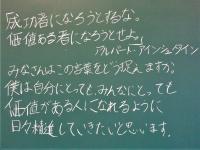 成功者になろうとするな。
価値ある者になろうとせよ。
アルバート・アインシュタイン
みなさんはこの言葉をどう捉えますか?
僕は自分にとっても、みんなにとっても
価値がある人になれるように
日々精進していきたいと思います。